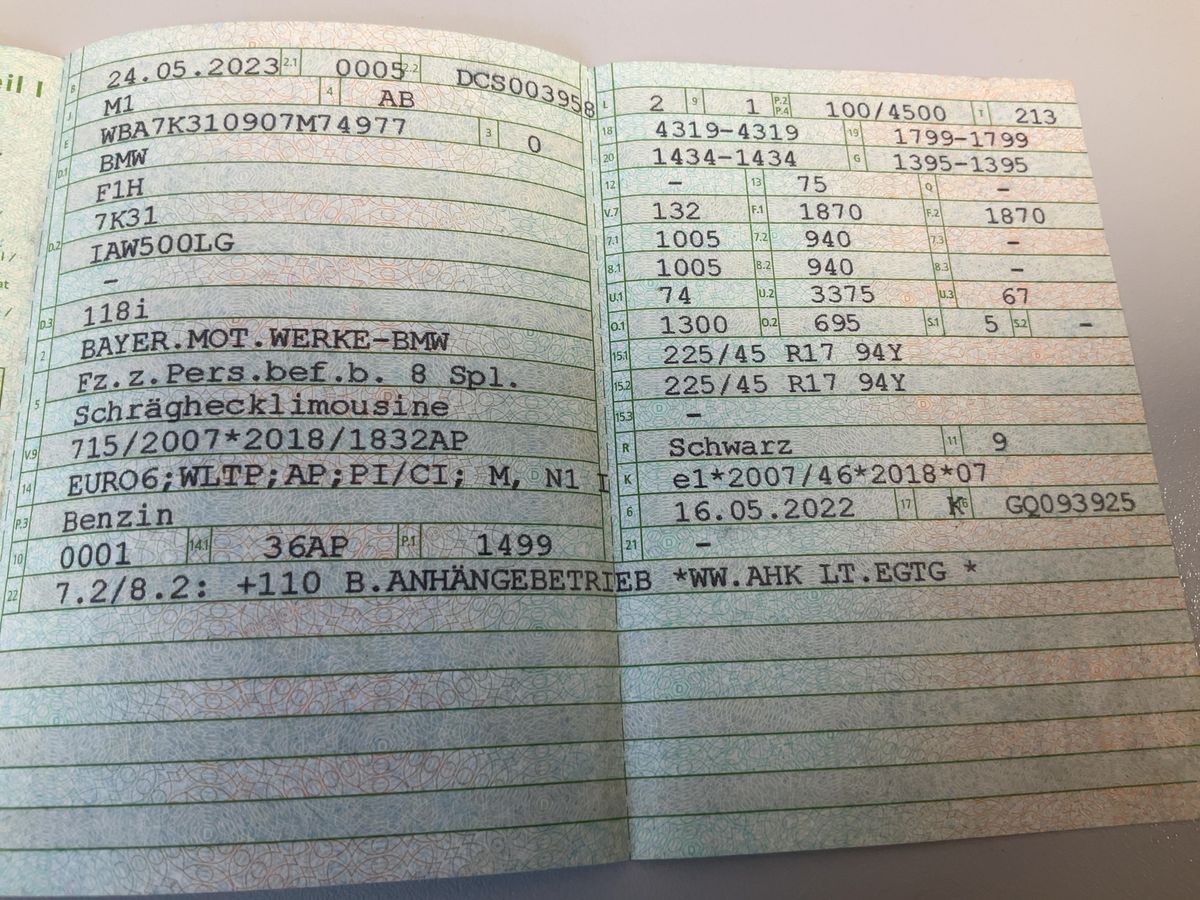 eil I
B 24.05.2023 2.1 0005 2.2 DCS003958
J M1 4 AB
E WBA7K310907M74977 3 0
D.1 BMW
F1H
7K31
D.2 IAW500LG
–
D.3 118i
2 BAYER.MOT.WERKE-BMW
Fz.z.Pers.bef.b. 8 Spl.
5 Schräghecklimousine
V.9 715/2007*2018/1832AP
14 EURO6;WLTP;AP;PI/CI; M, N1 I
P.3 Benzin
10 0001 14.1 36AP P.1 1499
22 7.2/8.2: +110 B.ANHÄNGEBETRIEB *WW.AHK LT.EGTG *
L 2 9 1 P.2 P.4 100/4500 T 213
18 4319-4319 19 1799-1799
20 1434-1434 G 1395-1395
12 – 13 75 Q –
V.7 132 F.1 1870 F.2 1870
7.1 1005 7.2 940 7.3 –
8.1 1005 8.2 940 8.3 –
U.1 74 U.2 3375 U.3 67
O.1 1300 O.2 695 S.1 5 S.2 –
15.1 225/45 R17 94Y
15.2 225/45 R17 94Y
15.3 –
R Schwarz 11 9
K e1*2007/46*2018*07
6 16.05.2022 17 K 16 GQ093925
21 –